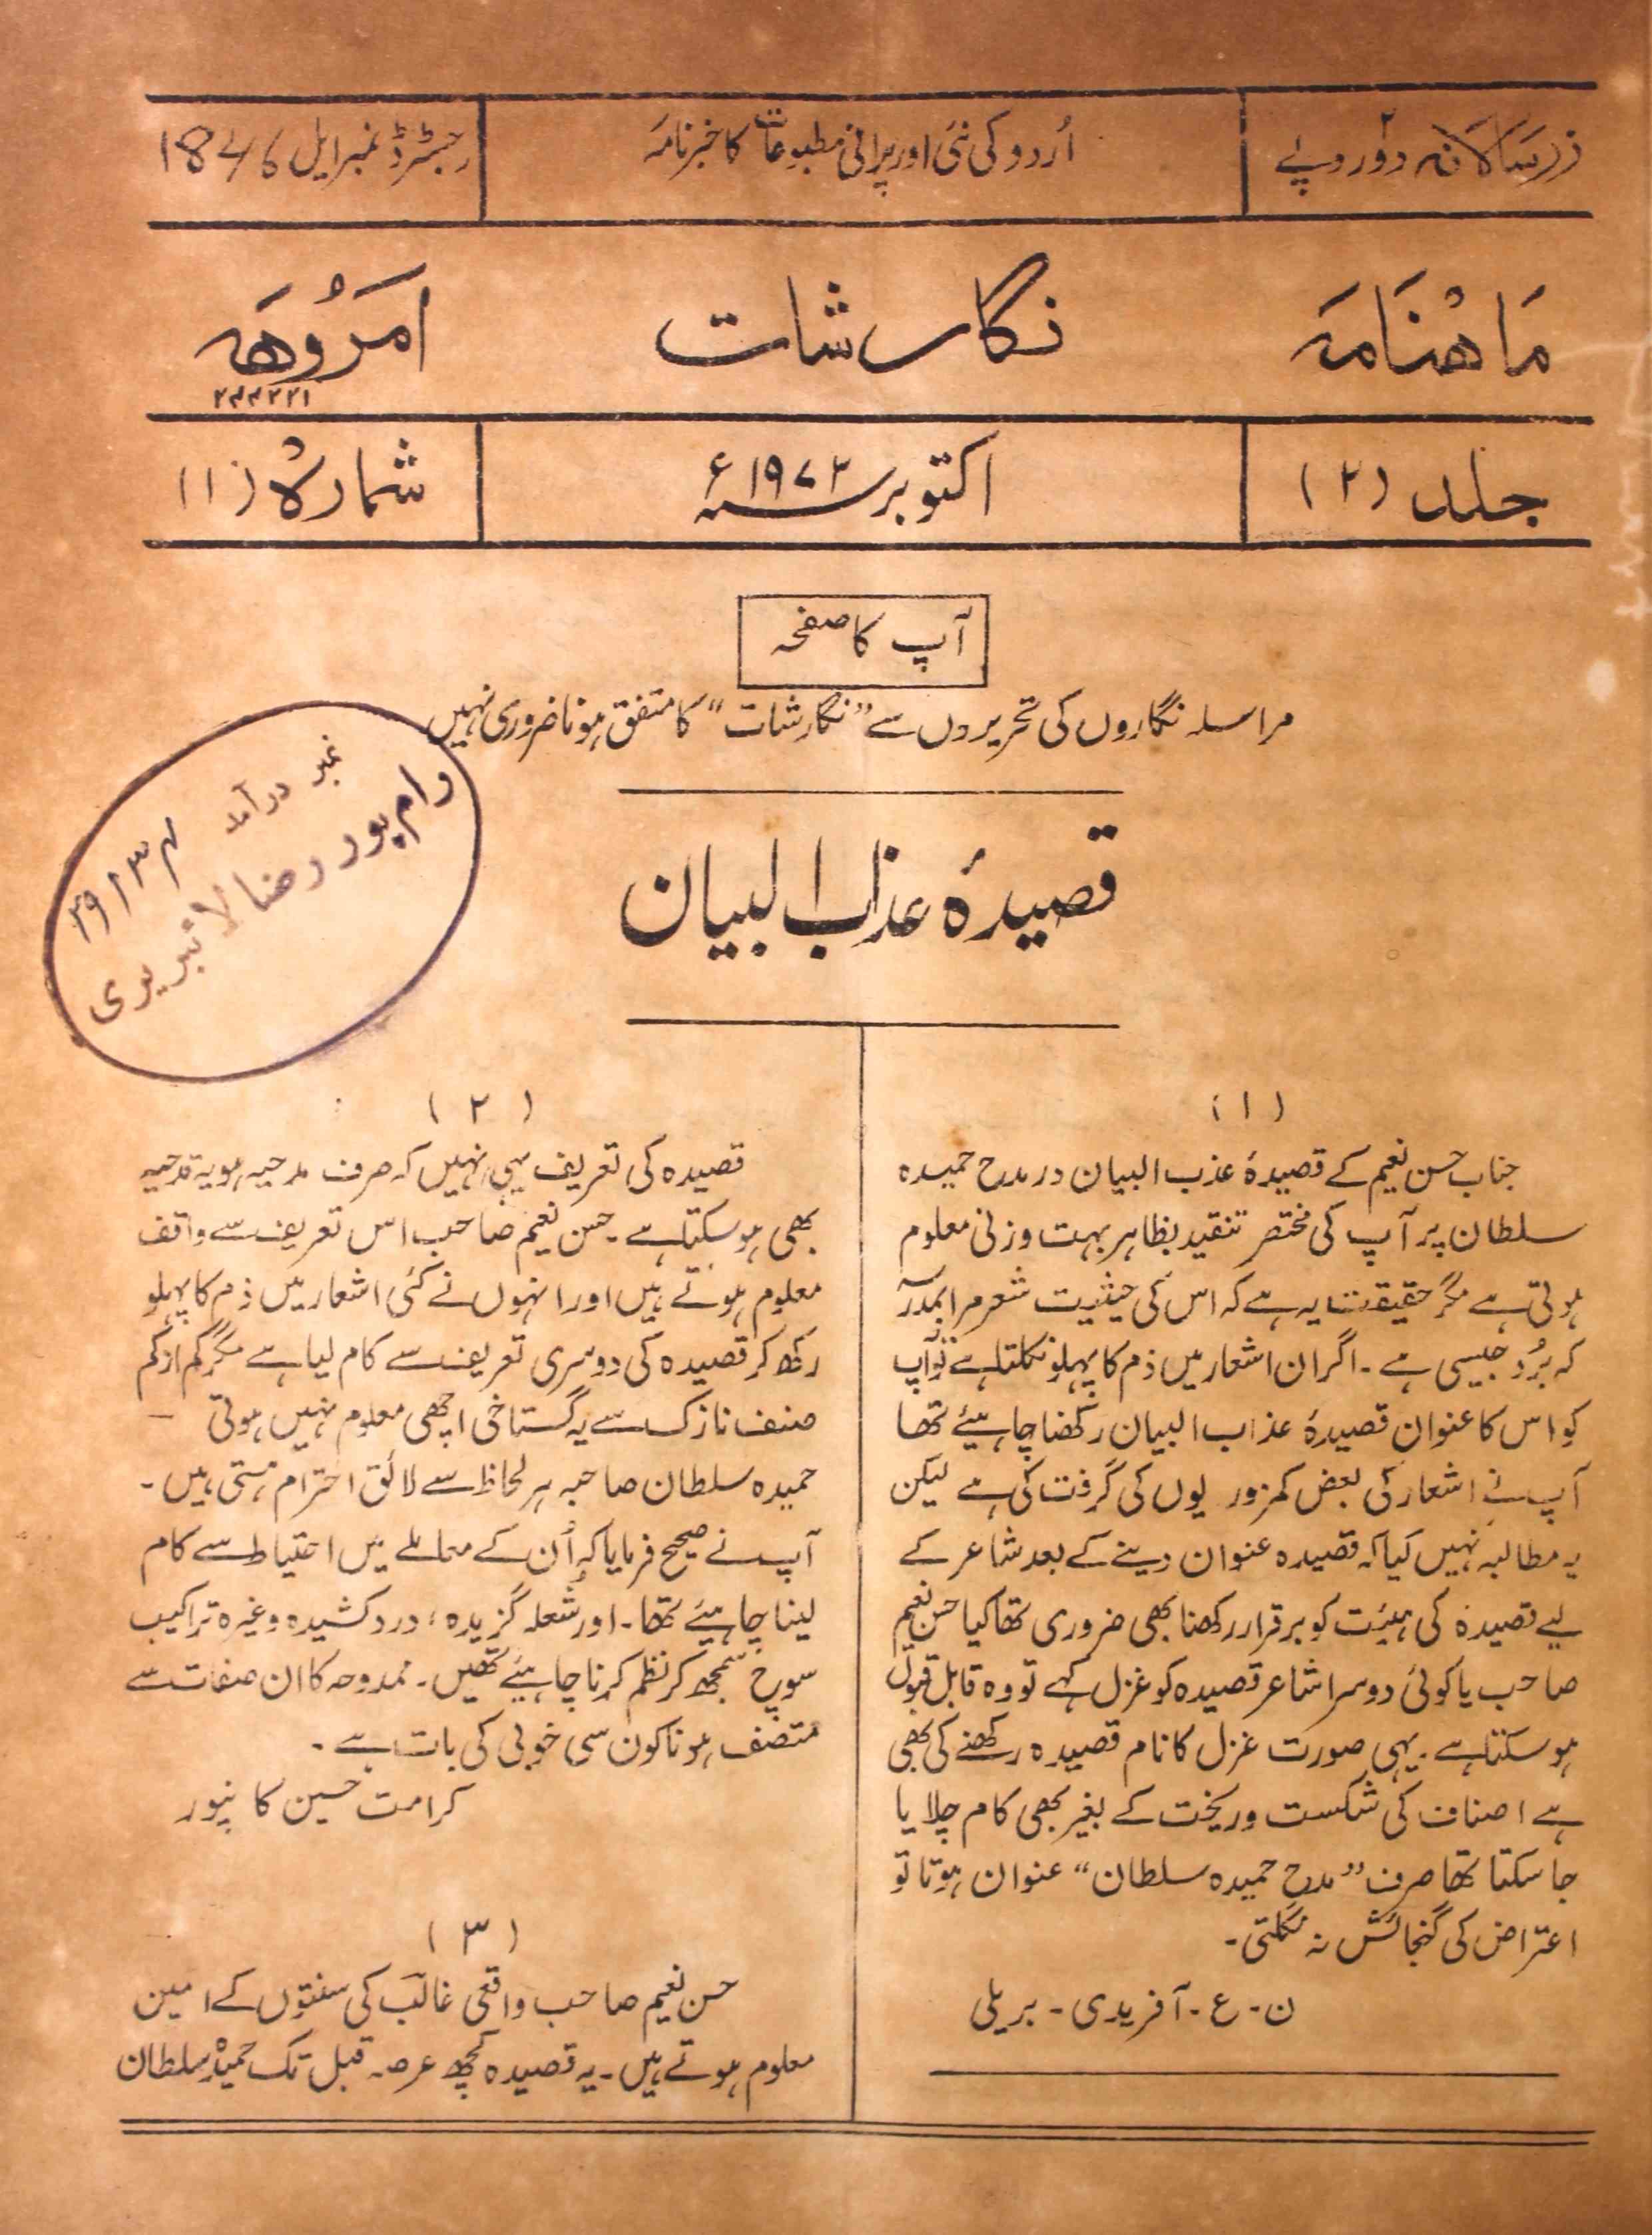 زرِ سالانہ دو ۲ روپے
اُردو کی نئی اور پرانی مطبوعات کا خبرنامہ
رجسٹرڈ نمبر ایل کا 184
ماہنامہ
نگارشات
امروہہ
۲۴۴۲۲۱
جلد (۲)
اکتوبر ۱۹۷۲ء
شمارہ (۱۰)
آپ کا صفحہ
مراسلہ نگاروں کی تحریروں سے "نگارشات" کا متفق ہونا ضروری نہیں
نمبر درآمد
رام پور رضا لائبریری
قصیدۂ عذاب البیان
(۱)
جناب حسن نعیم کے قصیدۂ عذب البیان در مدح حمیدہ
سلطان پر آپ کی مختصر تنقید بظاہر بہت وزنی معلوم
ہوتی ہے مگر حقیقت یہ ہے کہ اس کی حیثیت شعر مرا بمدرسہ
کہ بُرد جیسی ہے ۔ اگر ان اشعار میں ذم کا پہلو نکلتا ہے تو آپ
کو اس کا عنوان قصیدۂ عذاب البیان رکھنا چاہیئے تھا
آپ نے اشعار کی بعض کمزوریوں کی گرفت کی ہے لیکن
یہ مطالبہ نہیں کیا کہ قصیدہ عنوان دینے کے بعد شاعر کے
لیے قصیدہ کی ہیئت کو برقرار رکھنا بھی ضروری تھا کیا حسن نعیم
صاحب یا کوئی دوسرا شاعر قصیدہ کو غزل کہے تو وہ قابل قبول
ہو سکتا ہے ۔ یہی صورت غزل کا نام قصیدہ رکھنے کی بھی
ہے اصناف کی شکست و ریخت کے بغیر بھی کام چلایا
جا سکتا تھا صرف "مدح حمیدہ سلطان" عنوان ہوتا تو
اعتراض کی گنجائش نہ نکلتی ۔
ن ۔ ع ۔ آفریدی ۔ بریلی
(۲)
قصیدہ کی تعریف یہی نہیں کہ صرف مدحیہ ہو یہ قدحیہ
بھی ہو سکتا ہے ۔ حسن نعیم صاحب اس تعریف سے واقف
معلوم ہوتے ہیں اور انہوں نے کئی اشعار میں ذم کا پہلو
رکھ کر قصیدہ کی دوسری تعریف سے کام لیا ہے مگر کم از کم
صنف نازک سے یہ گستاخی اچھی معلوم نہیں ہوتی ۔
حمیدہ سلطان صاحبہ ہر لحاظ سے لائق احترام ہستی ہیں ۔
آپ نے صحیح فرمایا کہ اُن کے معاملے میں احتیاط سے کام
لینا چاہیئے تھا ۔ اور شعلہ گزیدہ ، درد کشیدہ وغیرہ تراکیب
سوچ سمجھ کر نظم کرنا چاہیئے تھیں ۔ ممدوحہ کا ان صفات سے
متصف ہونا کون سی خوبی کی بات ہے ۔
کرامت حسین کانپور
(۳)
حسن نعیم صاحب واقعی غالب کی سنتوں کے امین
معلوم ہوتے ہیں ۔ یہ قصیدہ کچھ عرصہ قبل تک حمیدہ سلطان